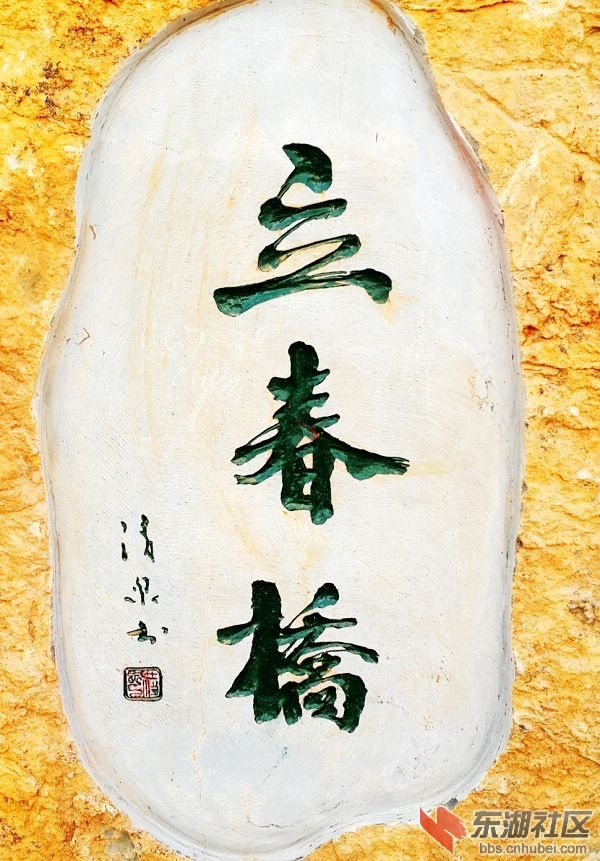 立春橋
清泉书
东湖社区
bbs.cnhubei.com